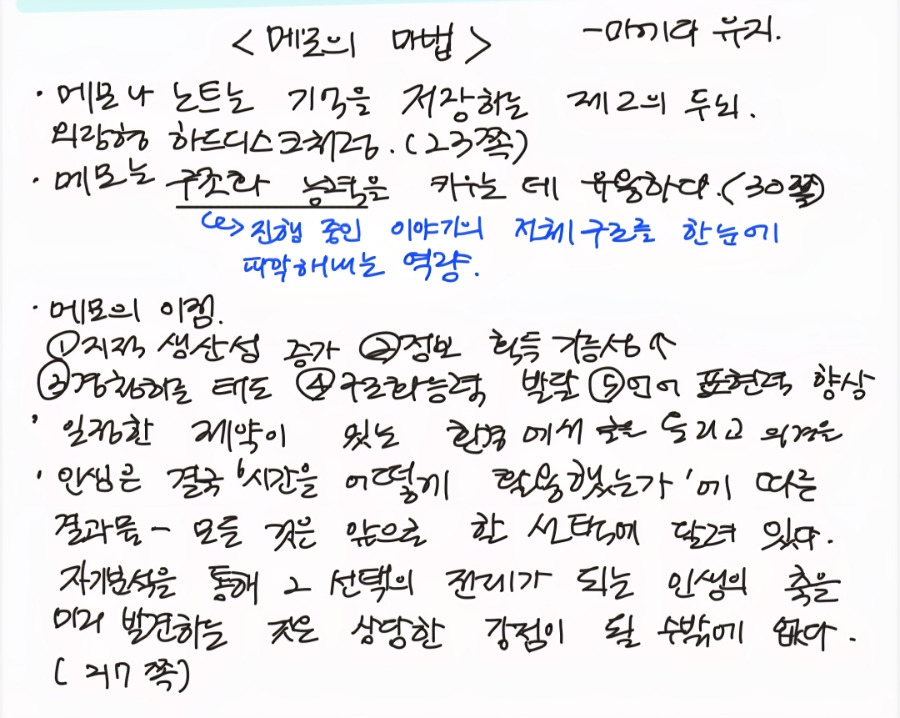 <메모의 마법> -마에다 유지.
· 메모나 노트는 기억을 저장하는 제2의 두뇌.
외장형 하드디스크처럼. (23쪽)
· 메모는 구조화 능력을 키우는 데 유용하다. (30쪽)
↳ 진행 중인 이야기의 전체 구조를 한눈에
파악해내는 역량.
· 메모의 이점.
①지적 생산성 증가 ②정보 획득 가능성↑
③경청하는 태도 ④구조화능력 발달 ⑤언어 표현력 향상
· 일정한 제약이 있는 환경에서 돌리고
· 인생은 결국 '시간을 어떻게 활용했는가'에 따른
결과물 - 모든 것은 앞으로 한 선택에 달려 있다.
자기분석을 통해 그 선택의 전제가 되는 인생의 축을
미리 발견하는 것은 상당한 강점이 될 수밖에 없다.
(217쪽)